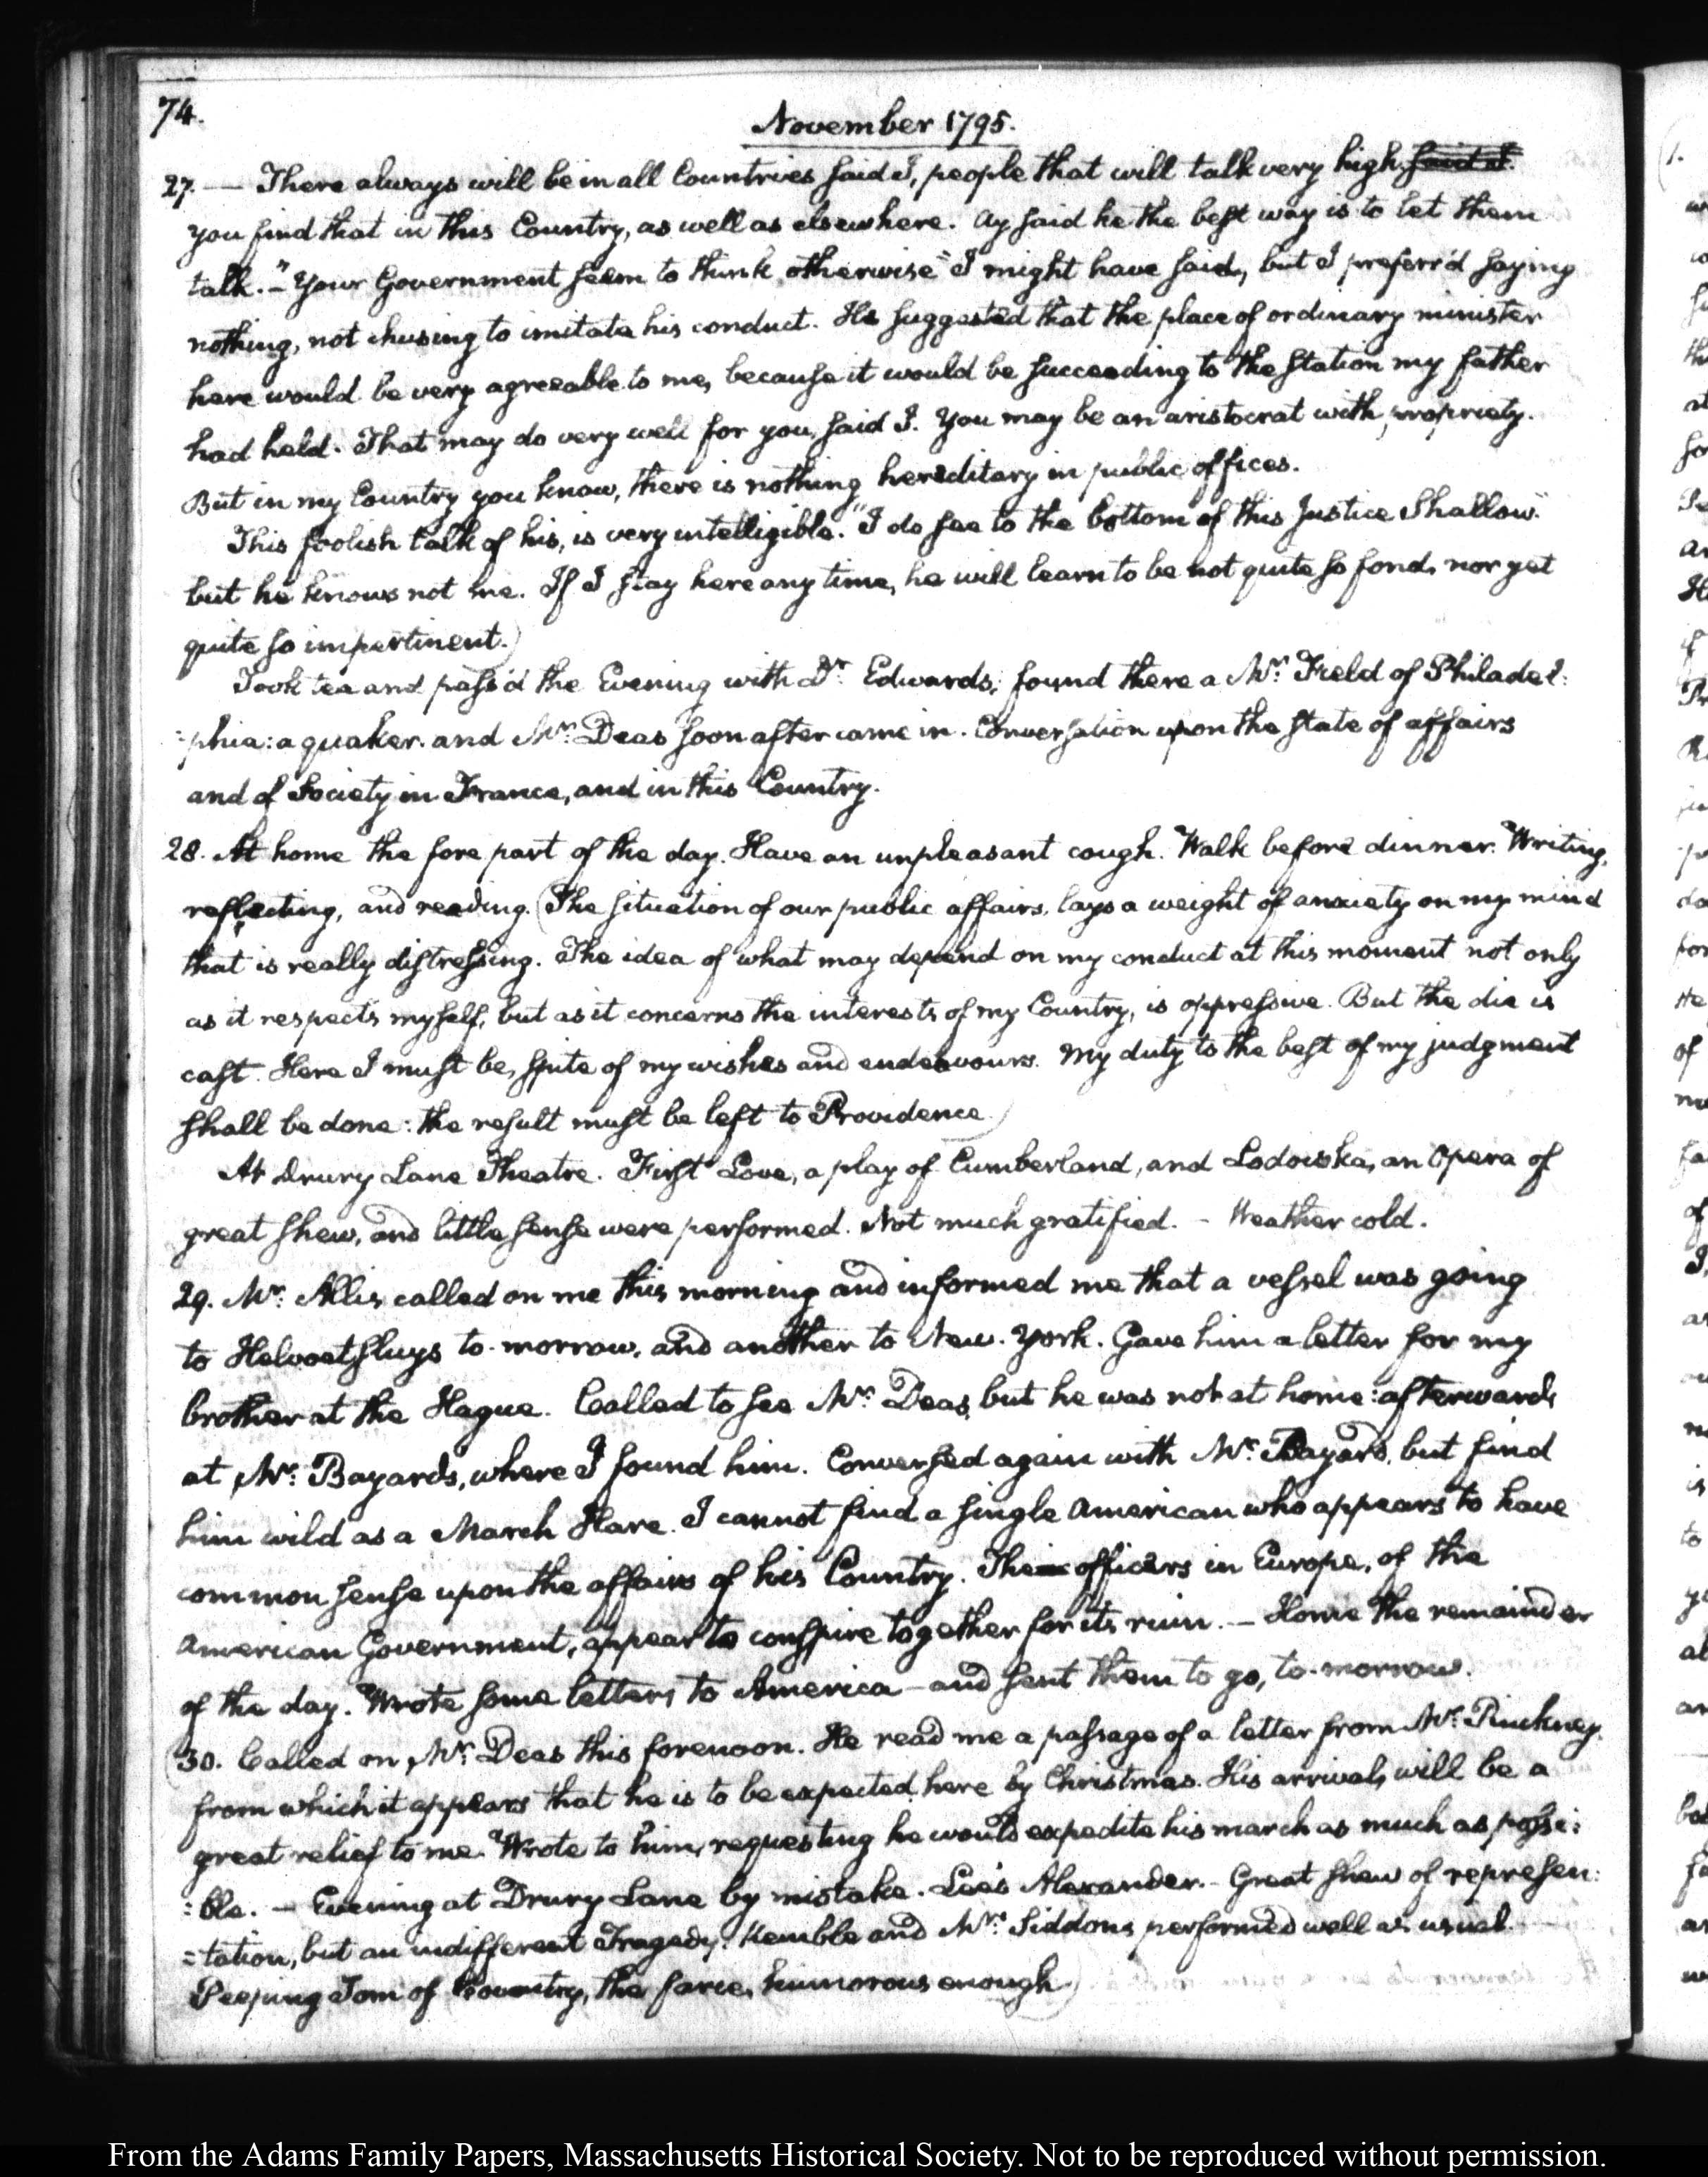 74.
November 1795.
27. — There always will be in all Countries said I, people that will talk very high, said I.
you find that in this Country, as well as elsewhere. Ay said he the best way is to let them
talk. "Your Government seem to think otherwise" I might have said, but I preferr'd saying
nothing, not chusing to imitate his conduct. He suggested that the place of ordinary minister
here would be very agreeable to me, because it would be succeeding to the station my father
had held. That may do very well for you, said I. You may be an aristocrat with propriety.
But in my Country you know, there is nothing hereditary in public offices.
This foolish talk of his, is very intelligible. "I do see to the bottom of this Justice Shallow."
but he knows not me. If I stay here any time, he will learn to be not quite so fond, nor yet
quite so impertinent.)
Took tea and pass'd the Evening with Dr. Edwards; found there a Mr. Field of Philadel:
:phia: a quaker. and Mr. Deas soon after came in. Conversation upon the state of affairs
and of Society in France, and in this Country.
28. At home the fore part of the day. Have an unpleasant cough. Walk before dinner. Writing,
reflecting, and reading. (The situation of our public affairs, lays a weight of anxiety on my mind
that is really distressing. The idea of what may depend on my conduct at this moment not only
as it respects myself, but as it concerns the interests of my Country, is oppressive. But the die is
cast. Here I must be, spite of my wishes and endeavours. My duty to the best of my judgment
shall be done: the result must be left to Providence.)
At Drury Lane Theatre. First Love, a play of Cumberland, and Lodoiska, an Opera of
great shew, and little sense were performed. Not much gratified. - Weather cold.
29. Mr. Allis called on me this morning and informed me that a vessel was going
to Helvoetsluys to-morrow, and another to New-York. Gave him a letter for my
brother at the Hague. Called to see Mr. Deas, but he was not at home: afterwards
at Mr. Bayards, where I found him. Conversed again with Mr. Bayard, but find
him wild as a March Hare. I cannot find a single American who appears to have
common sense upon the affairs of his Country. The officers in Europe, of the
American Government, appear to conspire together for its ruin. — Home the remainder
of the day. Wrote some letters to America — and sent them to go, to-morrow.
(30. Called on Mr. Deas this forenoon. He read me a passage of a letter from Mr. Pinckney.
from which it appears that he is to be expected here by Christmas. His arrival, will be a
great relief to me. Wrote to him, requesting he would expedite his march as much as possi:
:ble. — Evening at Drury Lane by mistake. Lee's Alexander. - Great shew of represen:
:tation, but an indifferent Tragedy. Kemble and Mrs. Siddons performed well as usual.
Peeping Tom of Coventry, the farce, humorous enough)
From the Adams Family Papers, Massachusetts Historical Society. Not to be reproduced without permission.